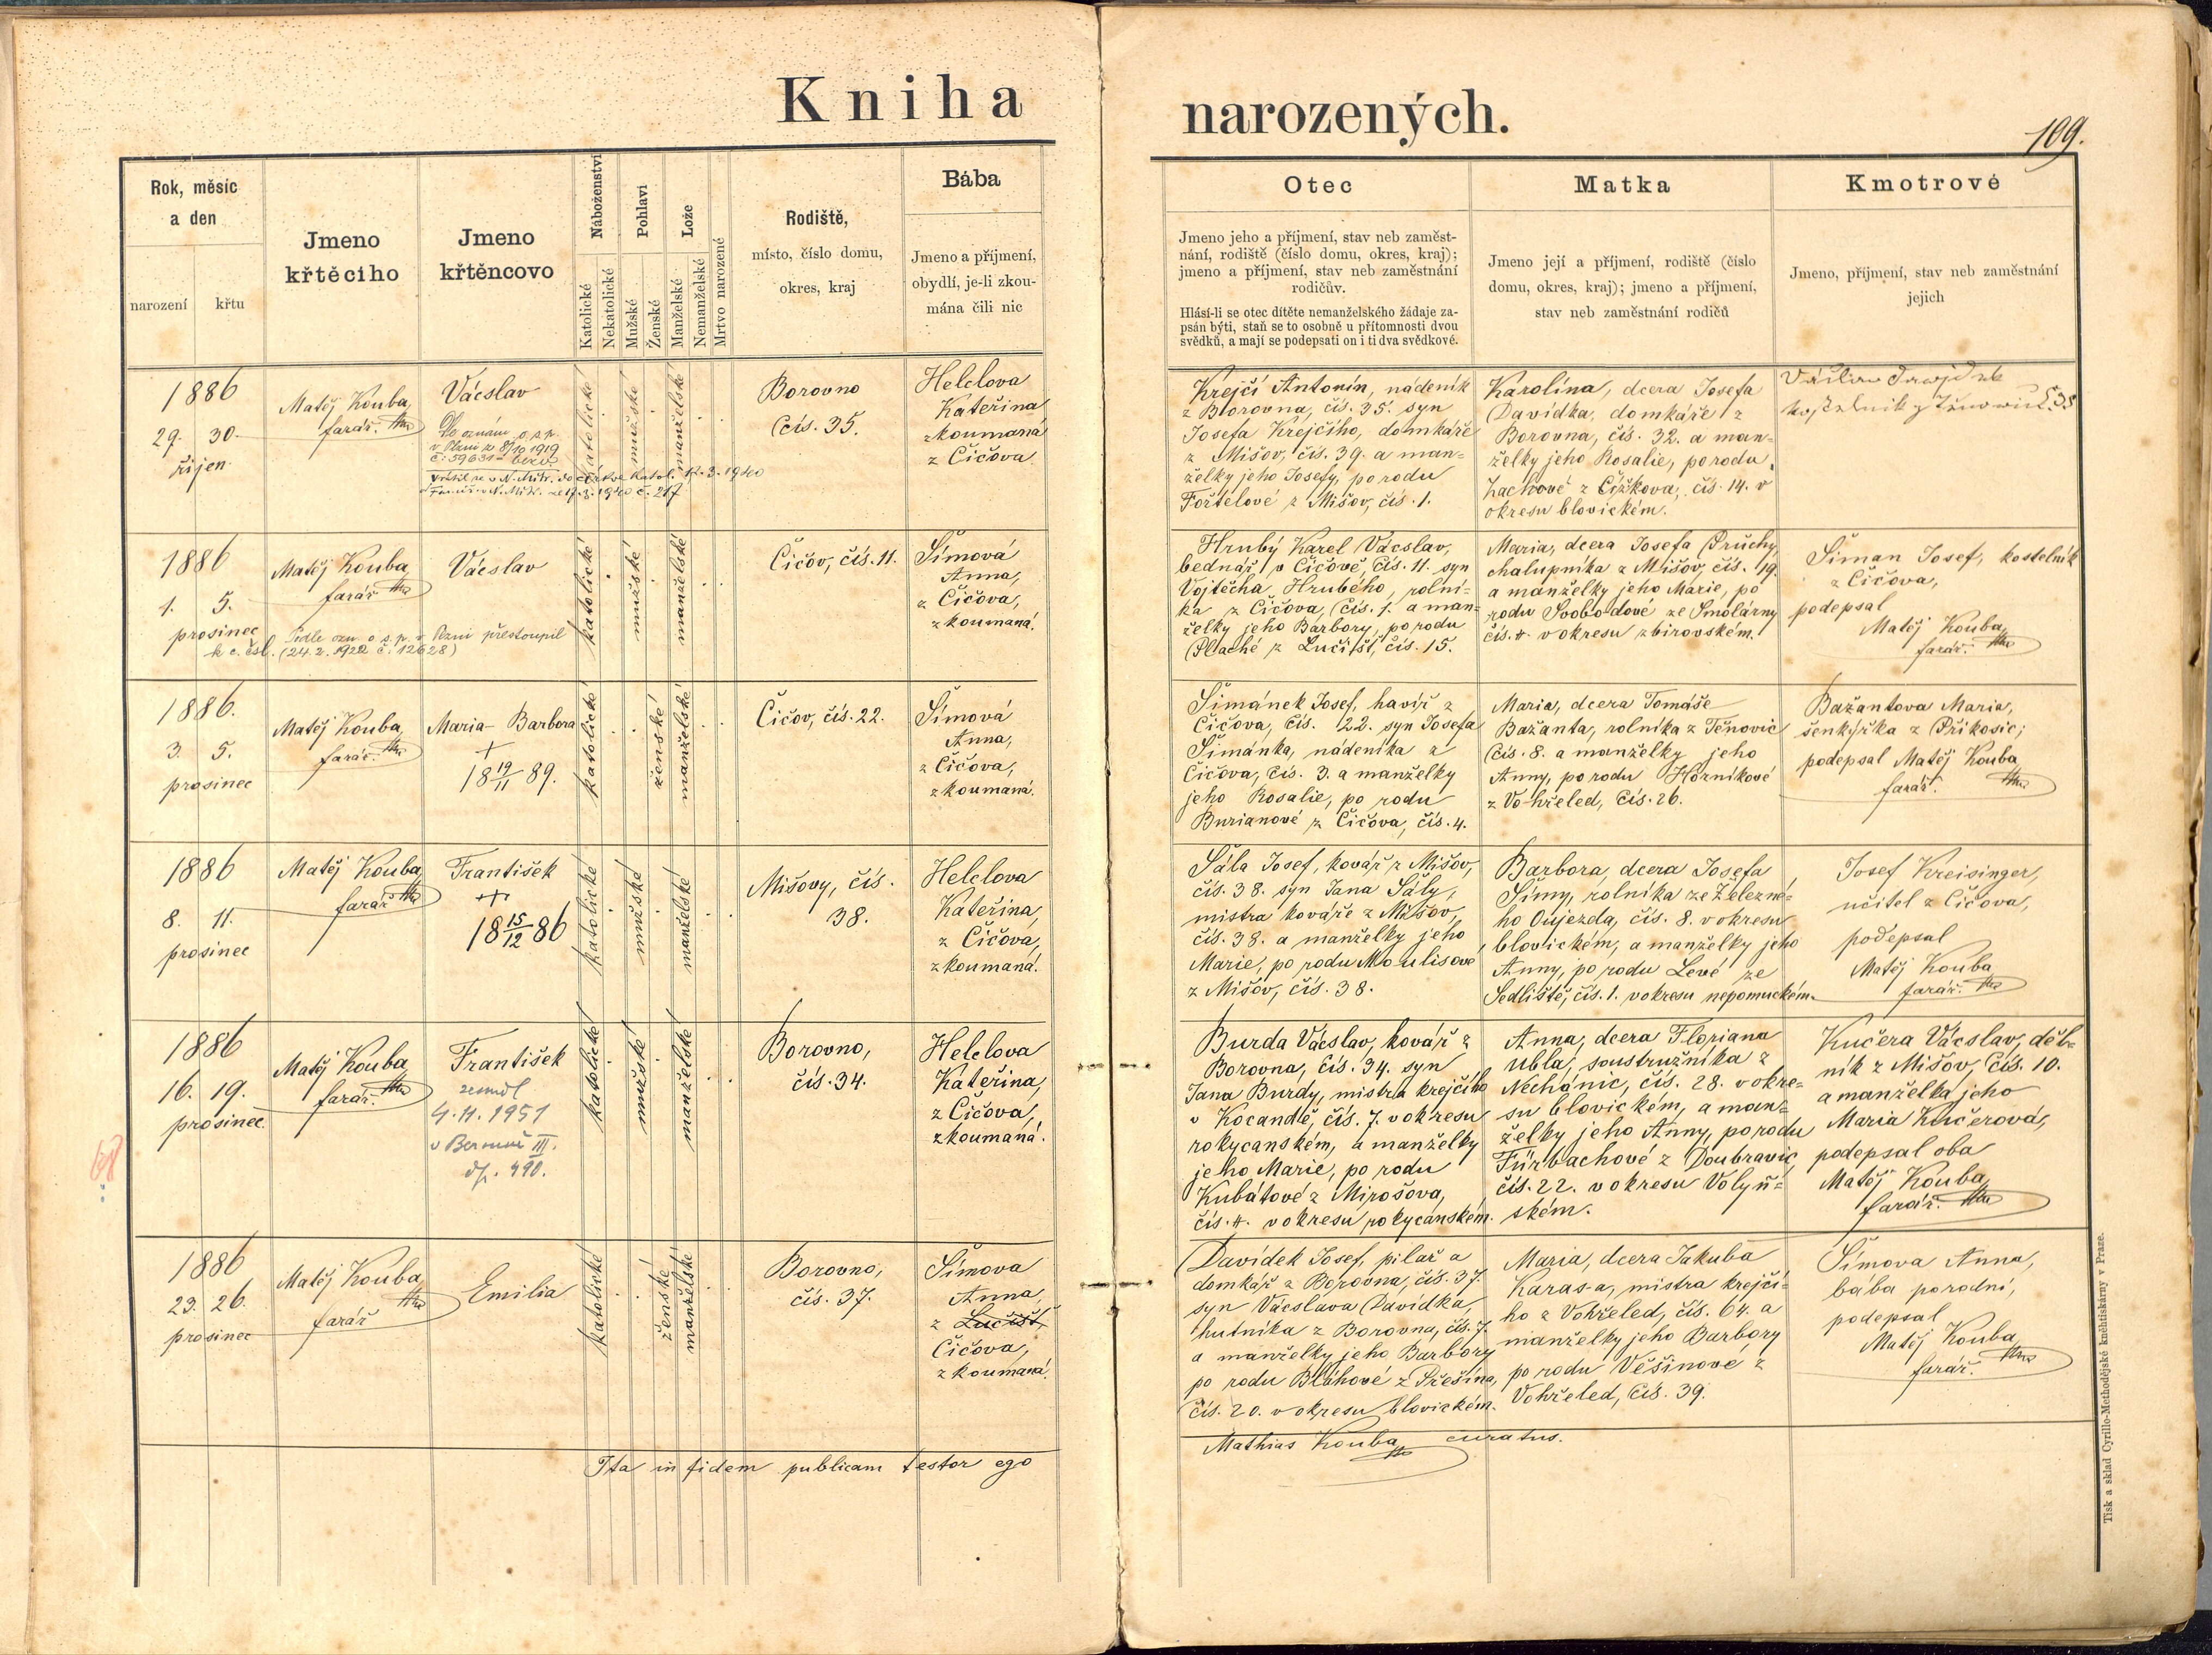 Kniha narozených.
109.
Rok, měsíc
a den
narození
křtu
Jmeno
křtěcího
Jmeno
křtěncovo
Náboženství
Katolické
Nekatolické
Pohlaví
Mužské
Ženské
Lože
Manželské
Nemanželské
Mrtvo narozené
Rodiště,
místo, číslo domu,
okres, kraj
Bába
Jmeno a příjmení,
obydlí, je-li zkou-
mána čili nic
Otec
Jmeno jeho a příjmení, stav neb zaměst-
nání, rodiště (číslo domu, okres, kraj);
jmeno a příjmení, stav neb zaměstnání
rodičův.
Hlásí-li se otec dítěte nemanželského žádaje za-
psán býti, staň se to osobně u přítomnosti dvou
svědků, a mají se podepsati on i ti dva svědkové.
Matka
Jmeno její a příjmení, rodiště (číslo
domu, okres, kraj); jmeno a příjmení,
stav neb zaměstnání rodičů
Kmotrové
Jmeno, příjmení, stav neb zaměstnání
jejich
1886
29. 30.
říjen
Matěj Kouba,
farář.
Václav
Dle oznám. o.s.p.
v Plzni z 8/10 1919
č: 59631 - bezv.
vrátil se v N. Mitr. do církve katol. 12.3.1940
katolické
mužské
manželské
Borovno
čís. 35.
Helclova
Kateřina
zkoumaná
z Čičova
Krejčí Antonín, nádeník
z Borovna, čís. 35. syn
Josefa Krejčího, domkáře
z Mišov, čís. 39. a man=
želky jeho Josefy, po rodu
Fořtelové z Mišov, čís. 1.
Karolína, dcera Josefa
Davídka, domkáře z
Borovna, čís. 32. a man=
želky jeho Rosalie, po rodu
Zachové z Čížkova, čís. 14. v
okresu blovickém.
1886
1. 5.
prosinec
Matěj Kouba,
farář
Václav
Podle ozn. o.s.p. v Plzni přestoupil
k c. čsl. (24.2.1922 č. 12628)
katolické
mužské
manželské
Čičov, čís. 11.
Šímová
Anna,
z Čičova,
zkoumaná.
Hrubý Karel Václav,
bednář v Čičově, čís. 11. syn
Vojtěcha Hrubého, rolní=
ka z Čičova, čís. 1. a man=
želky jeho Barbory, po rodu
Plaché z Lučišť, čís. 15.
Maria, dcera Josefa Průchy,
chalupníka z Mišov, čís. 19.
a manželky jeho Marie, po
rodu Svobodové ze Smolárny
čís. 4. v okresu zbirovském.
Šiman Josef, kostelník
z Čičova,
podepsal
Matěj Kouba,
farář.
1886.
3. 5.
prosinec
Matěj Kouba,
farář.
Maria Barbora
+
18 19/11 89.
katolické
ženské
manželské
Čičov, čís. 22.
Šímová
Anna,
z Čičova,
zkoumaná.
Šimánek Josef, havíř z
Čičova, čís. 22. syn Josefa
Šimánka, nádeníka z
Čičova, čís. 3. a manželky
jeho Rosalie, po rodu
Burianové z Čičova, čís. 4.
Maria, dcera Tomáše
Bažanta, rolníka z Těnovic
čís. 8. a manželky jeho
Anny, po rodu Horníkové
z Vohřeled, čís. 26.
Bažantova Maria,
šenkýřka z Příkosic;
podepsal Matěj Kouba,
farář.
1886
8. 11.
prosinec
Matěj Kouba,
farář
František
++
18 15/12 86
katolické
mužské
manželské
Mišovy, čís.
38.
Helclova
Kateřina,
z Čičova,
zkoumaná.
Šála Josef, kovář z Mišov,
čís. 38. syn Jana Šály,
mistra kováře z Mišov,
čís. 38. a manželky jeho
Marie, po rodu Moulisové
z Mišov, čís. 38.
Barbora, dcera Josefa
Šímy, rolníka ze Železné=
ho Oujezda, čís. 8. v okresu
blovickém, a manželky jeho
Anny, po rodu Levé ze
Sedliště, čís. 1. v okresu nepomuckém.
Josef Kreisinger,
učitel z Čičova,
podepsal
Matěj Kouba
farář.
1886
16. 19.
prosinec
Matěj Kouba
farář.
František
zemřel
4.11.1951
v Berouně III.
čp. 490.
katolické
mužské
manželské
Borovno,
čís. 34.
Helclova
Kateřina,
z Čičova,
zkoumaná.
Burda Václav, kovář z
Borovna, čís. 34. syn
Jana Burdy, mistra krejčího
v Kocandě, čís. 7. v okresu
rokycanském, a manželky
jeho Marie, po rodu
Kubátové z Mirošova,
čís. 4. v okresu rokycanském.
Anna, dcera Floriana
Ubla, soustružníka z
Nechánic, čís. 28. v okre=
su blovickém, a man=
želky jeho Anny, po rodu
Fürbachové z Doubravic,
čís. 22. v okresu Volyň=
ském.
Kučera Václav, děl=
ník z Mišov, čís. 10.
a manželka jeho
Maria Kučerová,
podepsal oba
Matěj Kouba,
farář.
1886
23. 26.
prosinec
Matěj Kouba,
farář
Emilia
katolické
ženské
manželské
Borovno,
čís. 37.
Šímova
Anna,
z Lučišť
Čičova,
zkoumaná.
Davídek Josef, pilař a
domkář z Borovna, čís. 37.
syn Václava Davídka,
hutníka z Borovna, čís. 7.
a manželky jeho Barbory
po rodu Bláhové z Přešína,
čís. 20. v okresu blovickém.
Maria, dcera Jakuba
Karasa, mistra krejčí=
ho z Vohřeled, čís. 64. a
manželky jeho Barbory
po rodu Věšínové z
Vohřeled, čís. 39.
Šímova Anna,
bába porodní,
podepsal
Matěj Kouba,
farář.
Ita in fidem publicam testor ego
Mathias Kouba, curatus.
Tisk a sklad Cyrillo-Methodějské knihtiskárny v Praze.